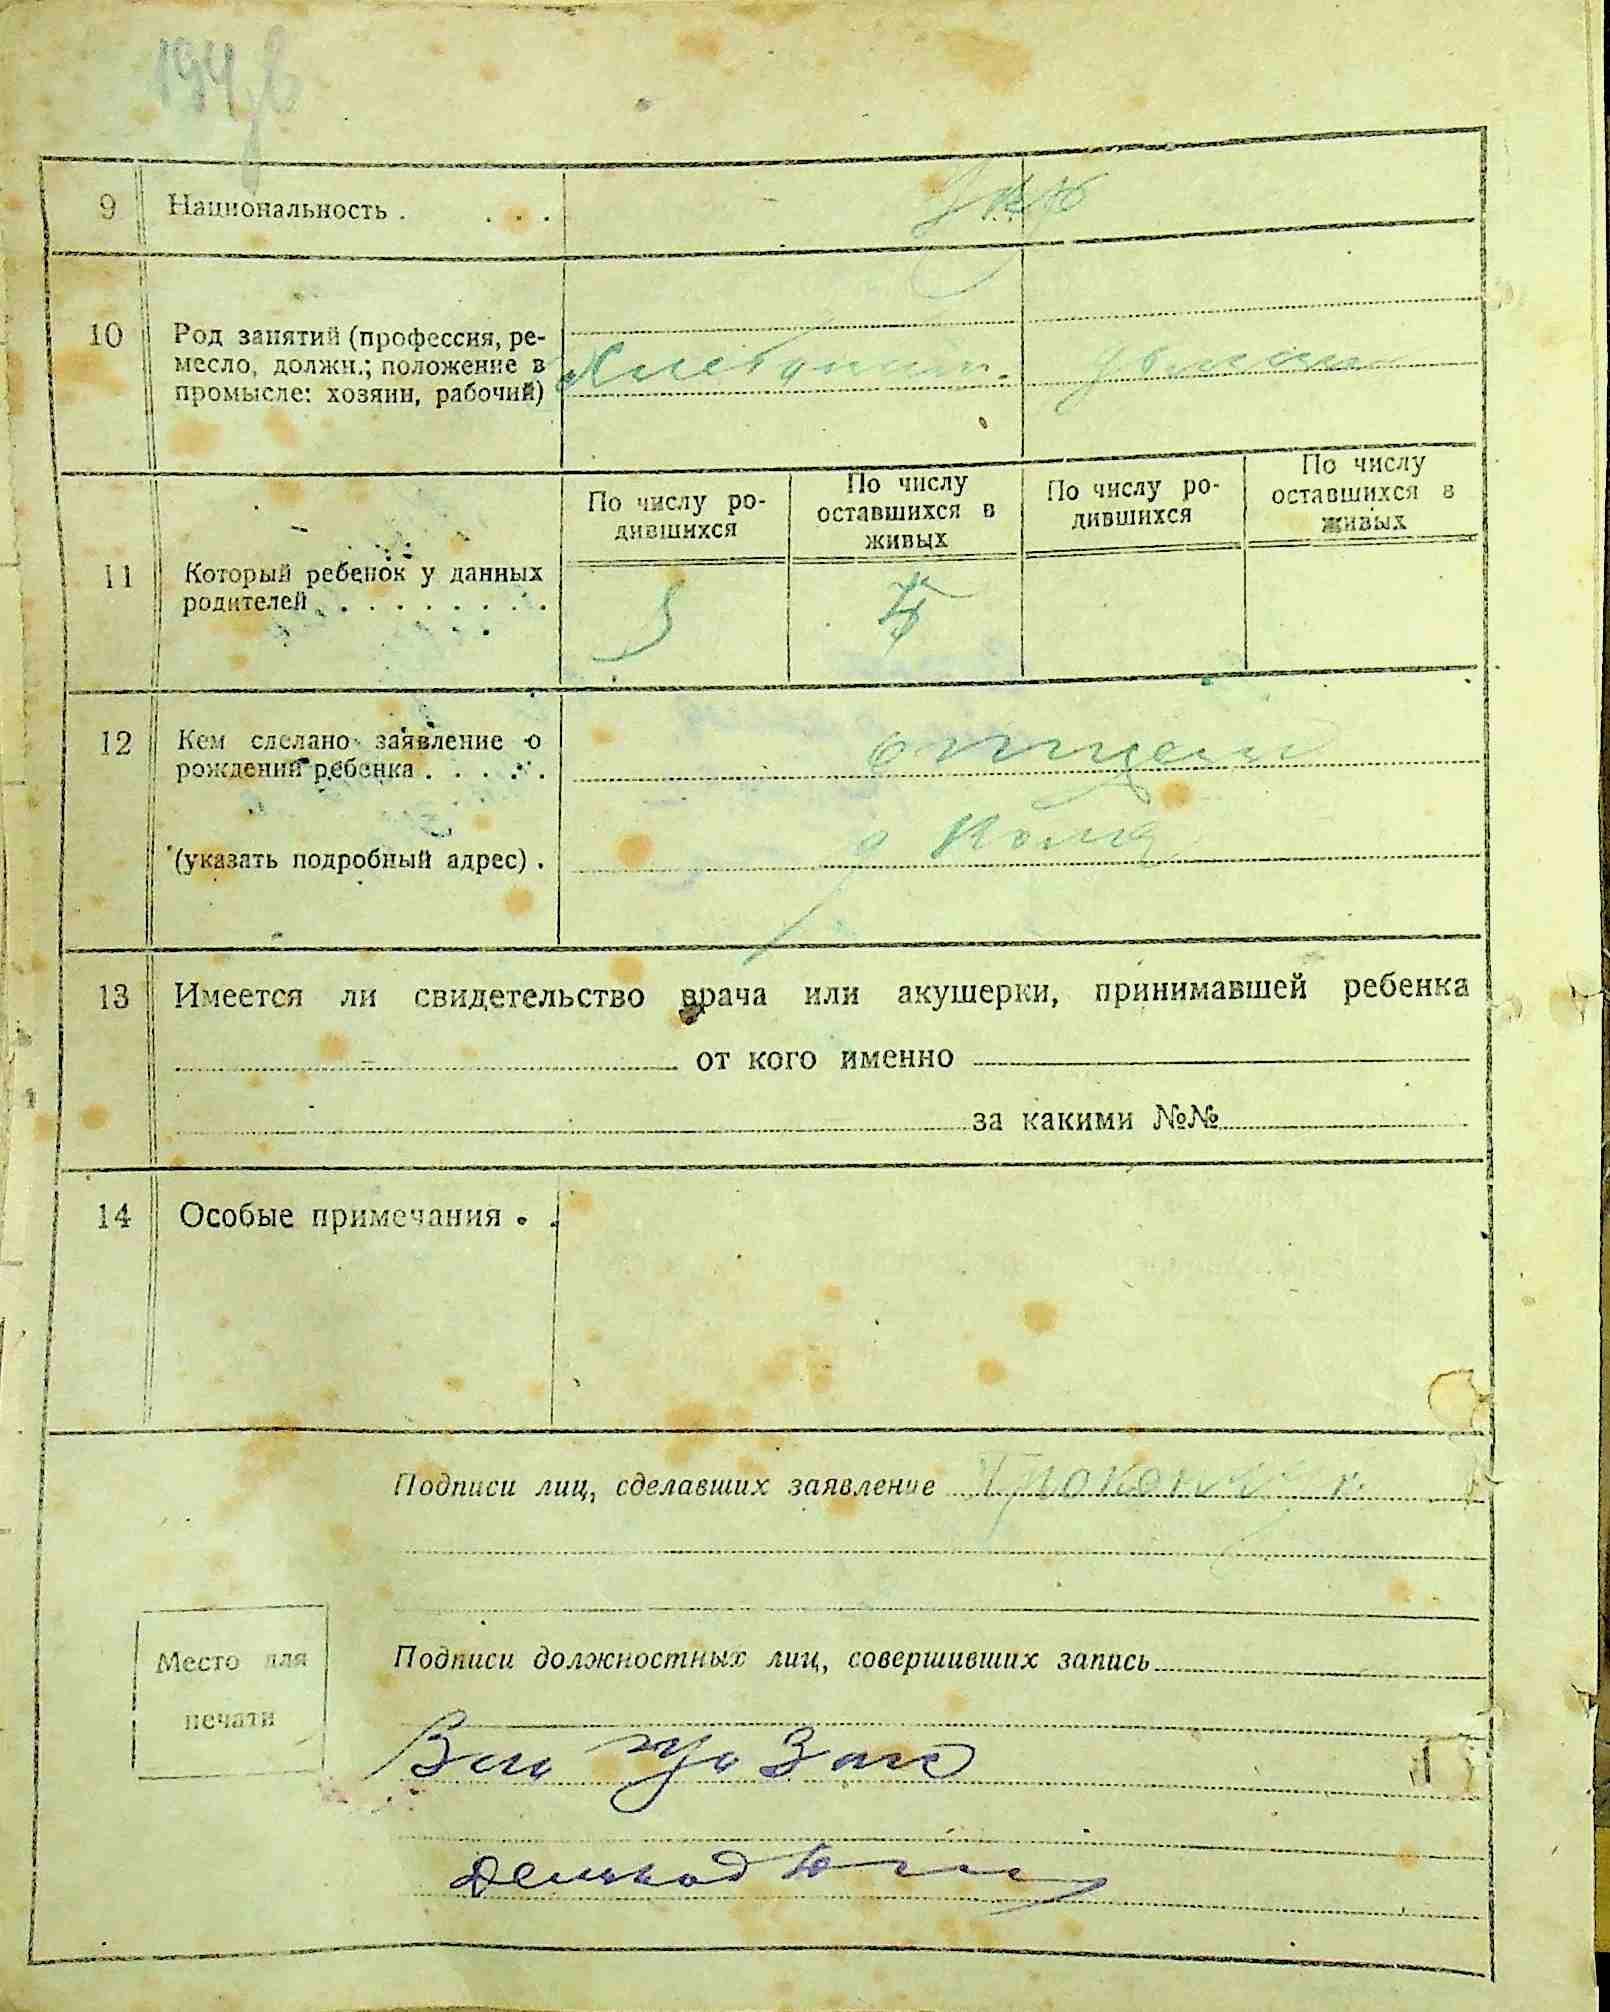 9 Национальность . . . . Укр
10 Род занятий (профессия, ре-
месло, должн.; положение в
промысле: хозяин, рабочий)
11 Который ребенок у данных
родителей . . . . . . . . .
По числу ро-
дившихся
По числу
оставшихся в
живых
По числу ро-
дившихся
По числу
оставшихся в
живых
5
12 Кем сделано заявление о
рождении ребенка . . . . . отцем
(указать подробный адрес) .
13 Имеется ли свидетельство врача или акушерки, принимавшей ребенка
от кого именно
за какими №№
14 Особые примечания . .
Подписи лиц, сделавших заявление
Место для
печати
Подписи должностных лиц, совершивших запись